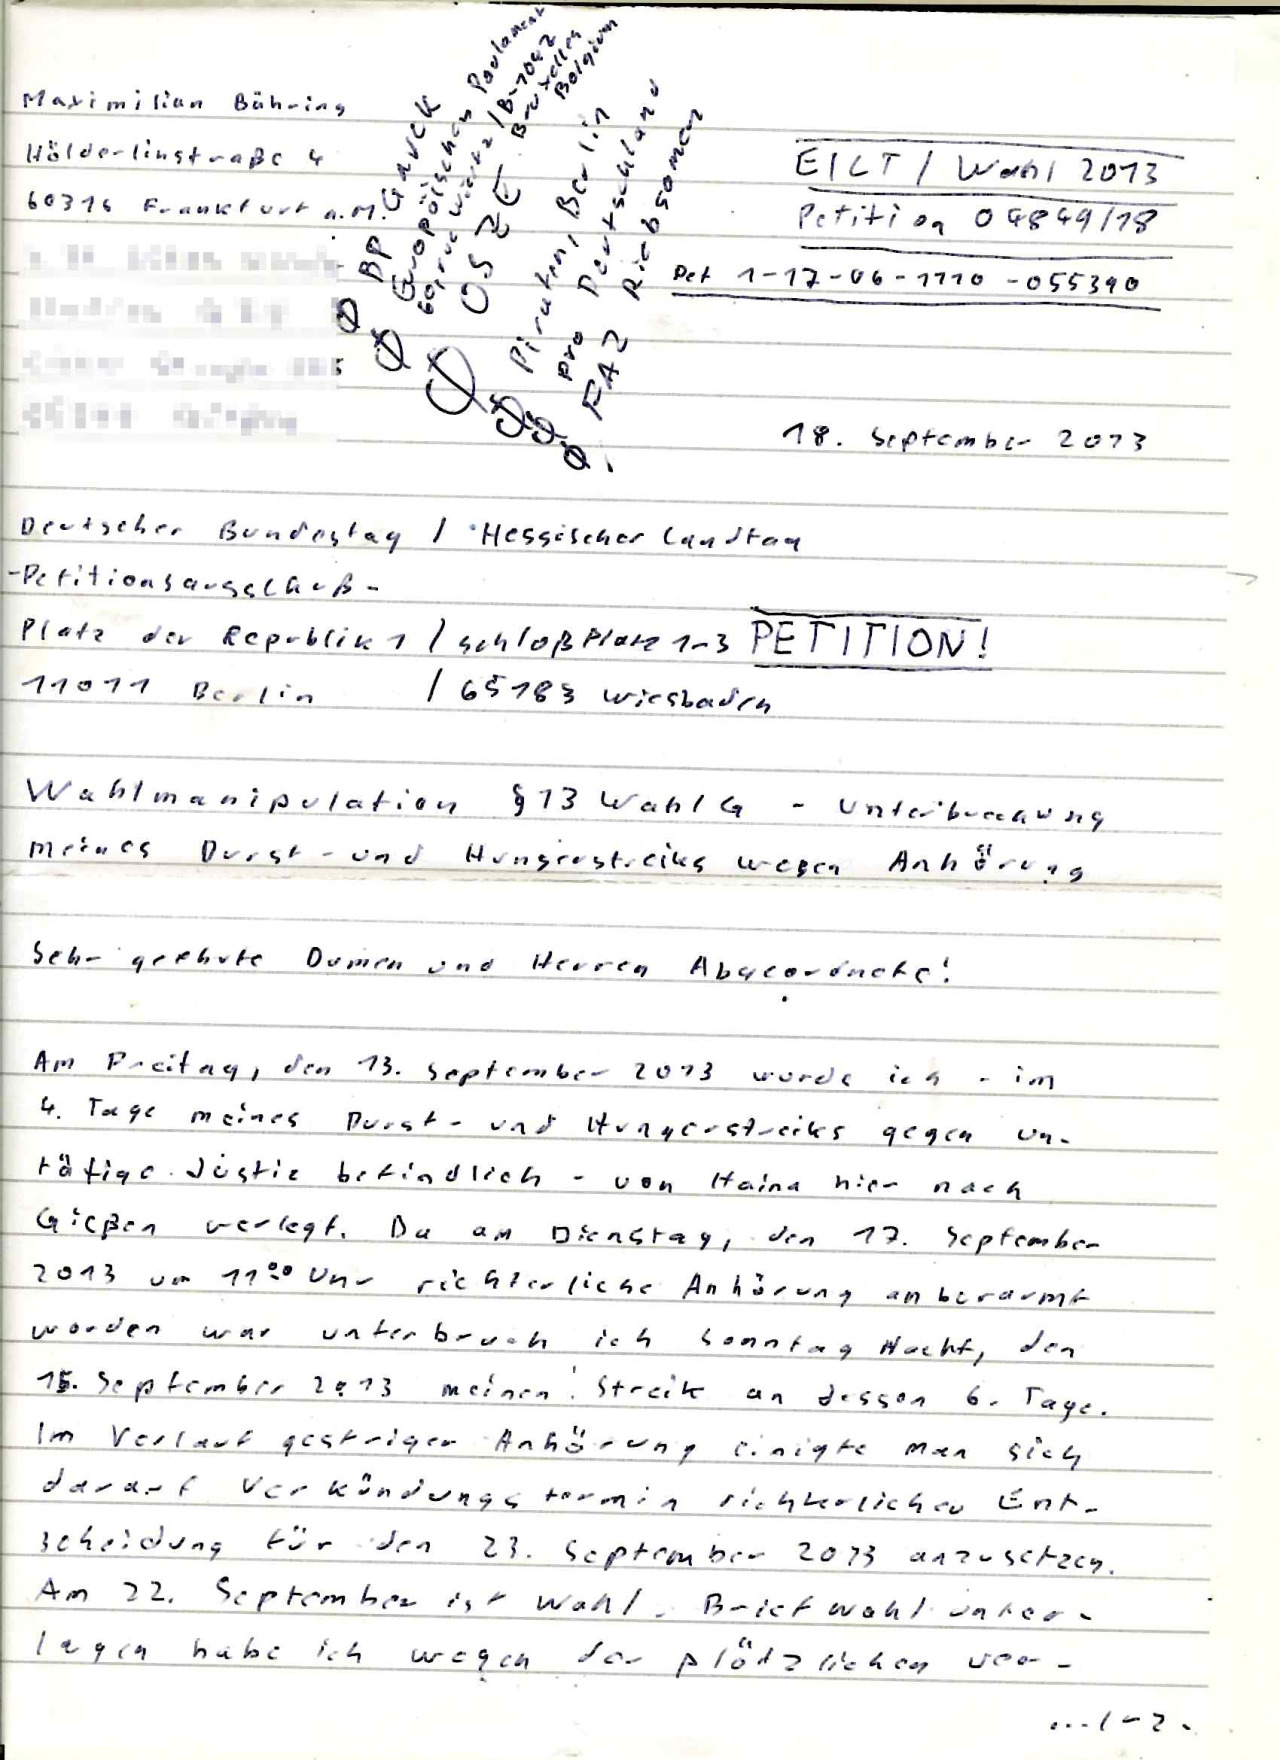 Maximilian Bähring
Hölderlinstraße 4
60316 Frankfurt a.M.
EILT / Wahl 2013
Petition 04849/18
Pet 1-17-06-1110-055390
Ø BP Gauck
Ø Europäisches Parlament
60, rue Wiertz / B-1047
Bruxelles
Belgium
Ø OSZE
Ø Piraten, Berlin
Ø pro Deutschland
Ø FAZ Riebsamen
18. September 2013
Deutscher Bundestag / Hessischer Landtag
-Petitionsausschuß-
Platz der Republik 1 / Schloßplatz 1-3 PETITION!
11011 Berlin / 65183 Wiesbaden
Wahlmanipulation §13 WahlG - Unterbrechung
meines Durst- und Hungerstreiks wegen Anhörung
Sehr geehrte Damen und Herren Abgeordnete!
Am Freitag, den 13. September 2013 wurde ich - im
4. Tage meines Durst- und Hungerstreiks gegen un-
tätige Justiz befindlich - von Haina hier nach
Gießen verlegt. Da am Dienstag, den 17. September
2013 um 11:00 Uhr richterliche Anhörung anberaumt
worden war unterbrach ich Sonntag Nacht, den
15. September 2013 meinen Streik an dessen 6. Tage.
Im Verlauf gestriger Anhörung einigte man sich
darauf Verkündungstermin richterlicher Ent-
scheidung für den 23. September 2013 anzusetzen.
Am 22. September ist Wahl. Briefwahlunter-
lagen habe ich wegen der plötzlichen ver-
.../-2-